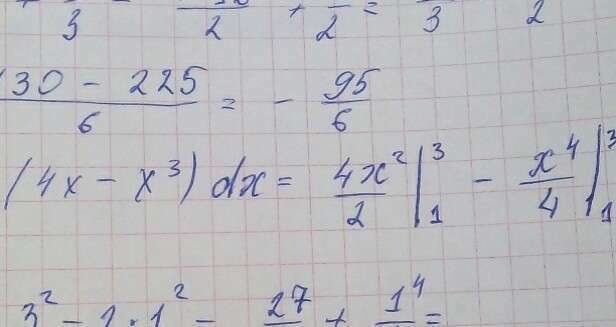 3 2 + 2 = 3 2
130 - 225 / 6 = - 95/6
(4x - x³) dx = 4x²/2 |₁³ - x⁴/4 |₁³
3² - 2·1² - 27 + 1⁴ =